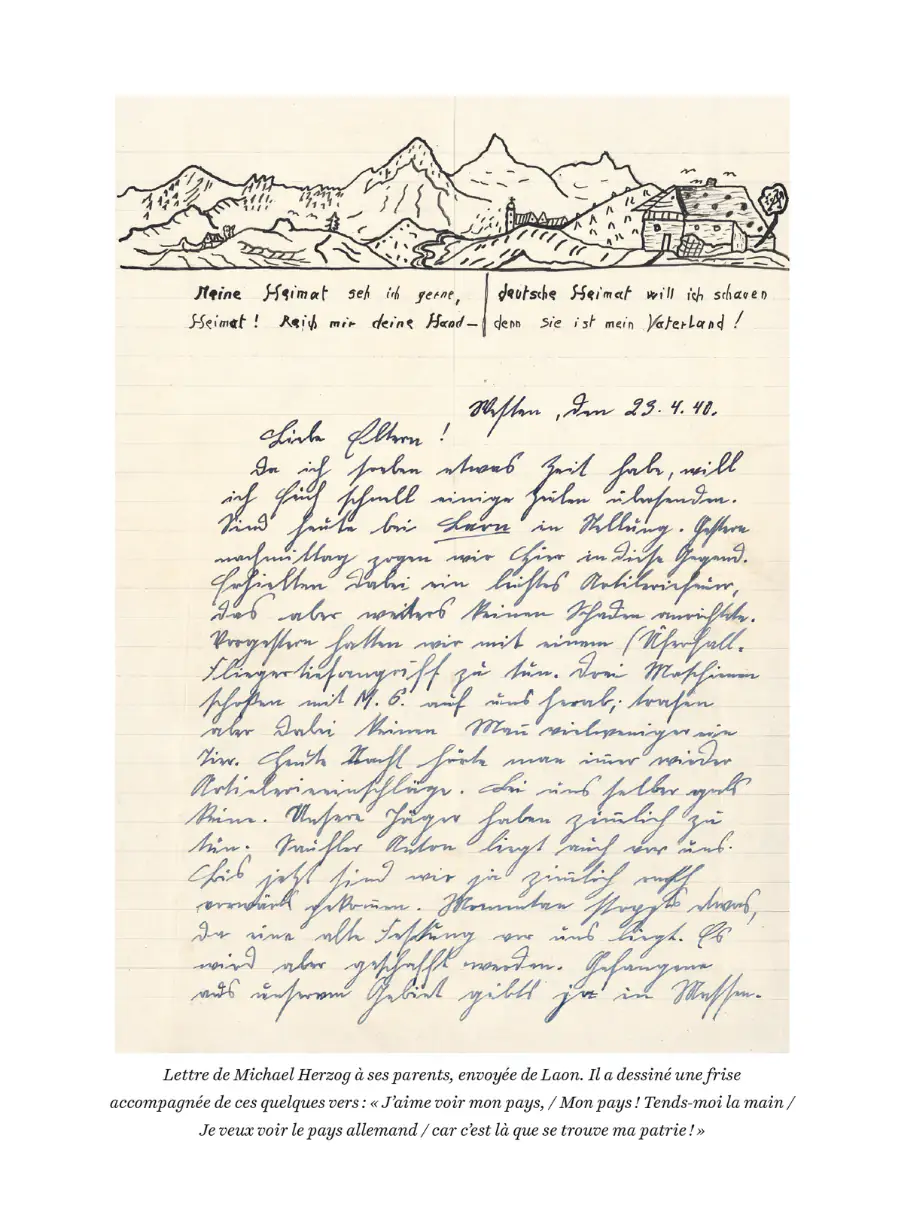 Meine Heimat seh ich gerne,
Heimat! Reich mir deine Hand—
deutsche Heimat will ich schauen
denn sie ist mein Vaterland!
Westen, den 23.4.40.
Liebe Eltern!
Da ich soeben etwas Zeit habe, will
ich Euch schnell einige Zeilen übersenden.
Sind heute bei Laon in Stellung. Gestern
nachmittag zogen wir hier in diese Gegend.
Erhielten dabei ein leichtes Artilleriefeuer,
das aber weiters keinen Schaden anrichtete.
Vorgestern hatten wir mit einem
Fliegertiefangriff zu tun. Drei Maschinen
schoßen mit M.G. auf uns herab, trafen
aber dabei keinen Mann vielweniger ein
Tier. Heute Nacht hörte man immer wieder
Artillerieeinschläge. Bei uns selber gabs
keine. Unsere Jäger haben ziemlich zu
tun. Anton liegt auch vor uns.
Bis jetzt sind wir ja ziemlich rasch
vorwärts gekommen. Momentan stoppts etwas,
da eine alte Festung vor uns liegt. Es
wird aber geschafft werden. Gefangene
aus unserem Gebiet gibts ja in Massen.
Lettre de Michael Herzog à ses parents, envoyée de Laon. Il a dessiné une frise
accompagnée de ces quelques vers : « J’aime voir mon pays, / Mon pays ! Tends-moi la main /
Je veux voir le pays allemand / car c’est là que se trouve ma patrie ! »